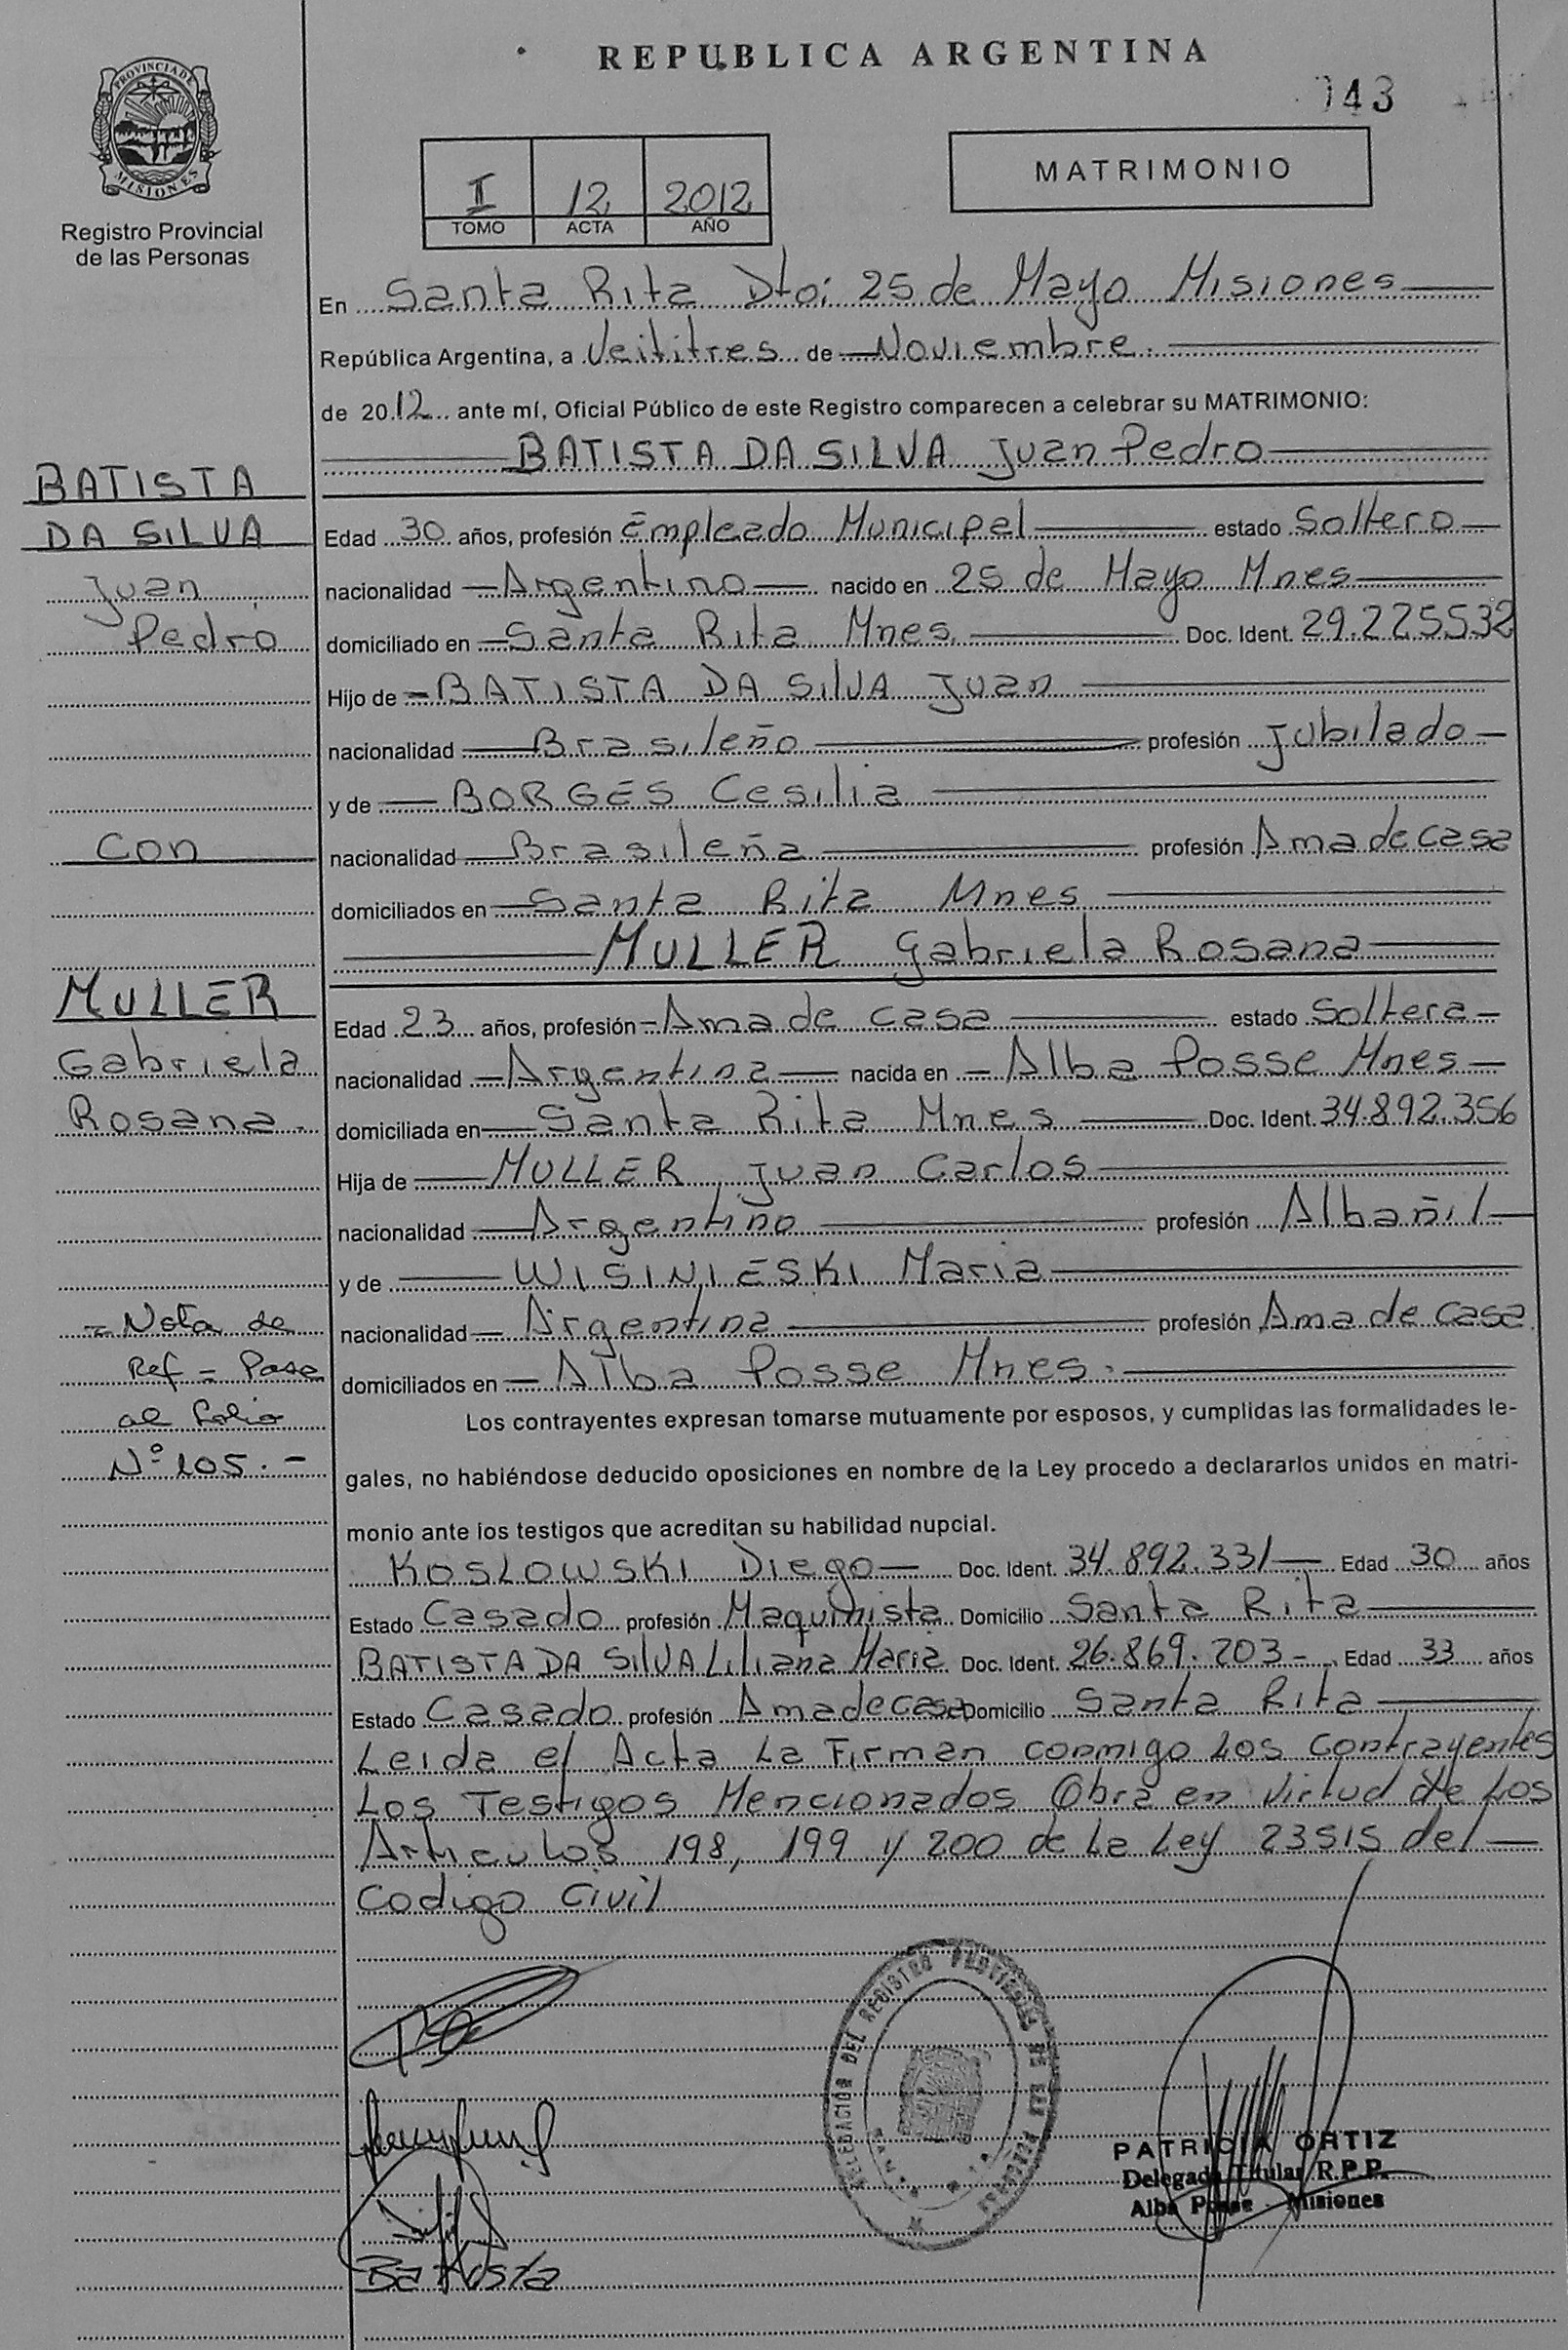 REPUBLICA ARGENTINA
043
PROVINCIA DE
MISIONES
Registro Provincial
de las Personas
I 12 2012
TOMO ACTA AÑO
MATRIMONIO
En Santa Rita Dto: 25 de Mayo Misiones
República Argentina, a Veititres de Noviembre.
de 2012 ante mí, Oficial Público de este Registro comparecen a celebrar su MATRIMONIO:
BATISTA DA SILVA Juan Pedro
BATISTA
DA SILVA
Juan
Pedro
Edad 30 años, profesión Empleado Municipal estado Soltero
nacionalidad Argentino nacido en 25 de Mayo Mnes
domiciliado en Santa Rita Mnes Doc. Ident. 29.225532
Hijo de BATISTA DA SilVA Juan
nacionalidad Brasileño profesión Jubilado
y de BORGES Cesilia
Con
nacionalidad Brasileña profesión Ama de casa
domiciliados en Santa Rita Mnes
MULLER Gabriela Rosana
MULLER
Gabriela
Rosana.
Edad 23 años, profesión Ama de casa estado Soltera
nacionalidad Argentina nacida en Alba Posse Mnes
domiciliada en Santa Rita Mnes Doc. Ident. 34.892.356
Hija de MULLER Juan Carlos
nacionalidad Argentino profesión Albañil
y de WISINIESKI Maria
nacionalidad Argentina profesión Ama de casa
domiciliados en Alba Posse Mnes.
- Nota de
Ref = Pase
al folio
Nº 105. -
Los contrayentes expresan tomarse mutuamente por esposos, y cumplidas las formalidades le-
gales, no habiéndose deducido oposiciones en nombre de la Ley procedo a declararlos unidos en matri-
monio ante los testigos que acreditan su habilidad nupcial.
KOSLOWSKI Diego Doc. Ident. 34.892.331 Edad 30 años
Estado Casado profesión Maquinista Domicilio Santa Rita
BATISTA DA SilVA Liliana Maria Doc. Ident. 26.869.203 - Edad 33 años
Estado Casado profesión Ama de casa Domicilio Santa Rita
Leida el Acta La Firman conmigo Los Contrayentes
Los Testigos Mencionados Obra en Virtud de Los
Articulos 198, 199 y 200 de La Ley 23515 del
Codigo Civil
DELEGACIÓN DEL REGISTRO PROVINCIAL DE LAS PERSONAS
PATRICIA ORTIZ
Delegada Titular R.P.P.
Alba Posse - Misiones